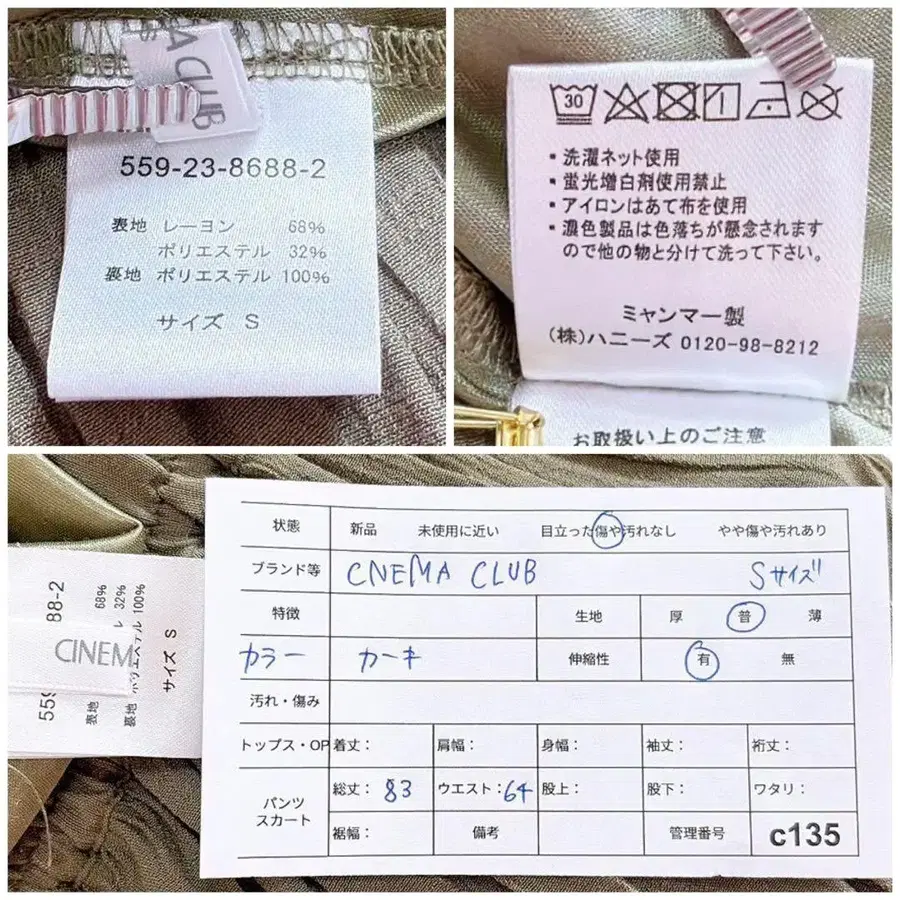 A CLUB
559-23-8688-2
表地 レーヨン 68%
ポリエステル 32%
裏地 ポリエステル 100%
サイズ S
30
・洗濯ネット使用
・蛍光増白剤使用禁止
・アイロンはあて布を使用
・濃色製品は色落ちが懸念されます
ので他の物と分けて洗って下さい。
ミャンマー製
(株)ハニーズ 0120-98-8212
お取扱い上のご注意
88-2
68%
32%
100%
CINEM
559
表地
裏地
サイズ S
状態 新品 未使用に近い 目立った傷や汚れなし やや傷や汚れあり
ブランド等 CNEMA CLUB Sサイズ
特徴 生地 厚 普 薄
カラー カーキ 伸縮性 有 無
汚れ・傷み
トップス・OP 着丈： 肩幅： 身幅： 袖丈： 裄丈：
パンツ
スカート
総丈：83 ウエスト：64 股上： 股下： ワタリ：
裾幅： 備考 管理番号 c135